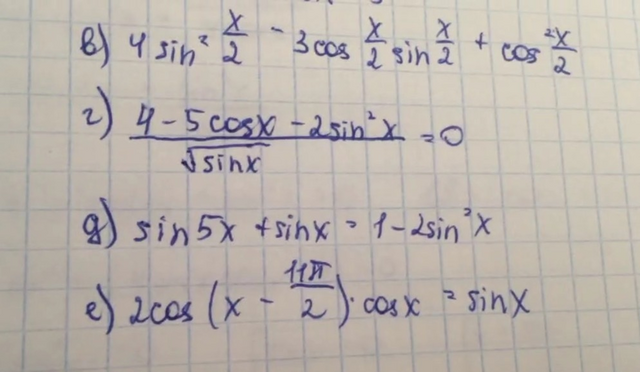 в) 4 sin² x/2 - 3cos x/2 sin x/2 + cos² x/2
г) (4 - 5cosx - 2sin²x)/√sinx = 0
д) sin5x + sinx = 1 - 2sin²x
е) 2cos(x - 11π/2)·cosx = sinx